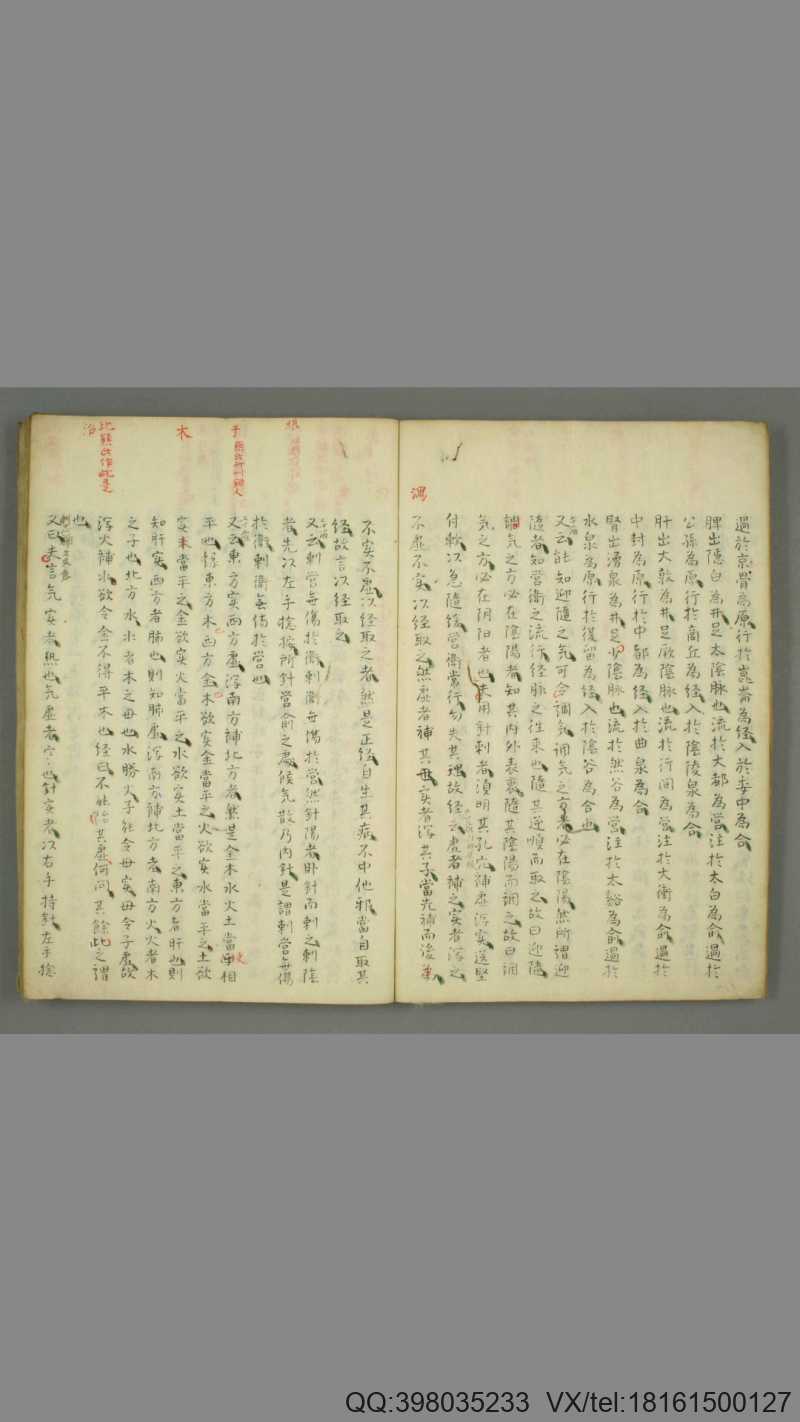 過於京骨為原行於崑崙為経入於委中為合
脾出隠白為井足太陰脉也流於大都為営注於太白為俞過於
公孫為原行於商丘為経入於陰陵泉為合
肝出大敦為井足厥陰脉也流於行间為営注於大衝為俞過於
中封為原行於中都為経入於曲泉為合
腎出湧泉為井足少陰脉也流於然谷為営注於太谿為俞過於
水泉為原行於復留為経入於陰谷為合也
又云能知迎随之气可令调气调气之方必在陰陽然所謂迎
隨者知営衛之流行経脉之往来也隨其逆順而取之故曰迎隨
調气之方必在陰陽者知其内外表裏隨其陰陽而调之故曰调
气之方必在阴阳者也用針刺者湏明其孔穴補虚泻实送堅
付軟以急隨緩営衛常行勿失其理故経云虚者補之实者泻之
不虚不实以経取之然虚者補其母实者泻其子當先補而後
不实不虚以経取之者然是正経自生其病不中他邪當自取其
経故言以経取之
又云刺営毋傷於衛刺衛毋傷於営然針陽者卧針而刺之刺陰
者先以左手捻按所針営俞之處候气散乃内針是謂刺営毋傷
於衛刺衛無傷於営也
又云東方实西方虚泻南方補北方者然是金木水火土當相
平也経東方木西方金木欲实金當平之火欲实水當平之土欲
实木當平之金欲实火當平之水欲实土當平之東方者肝也則
知肝实西方者肺也則知肺虚泻南方補北方者南方火火者木
之子也北方水水者木之母也水勝火子能令母实母令子虚故
泻火補水欲令金不得平木也経曰不能治其虚何问其餘此之謂
也
又曰言气实者热也气虚者也針实者以右手持針左手捻
QQ:398035233 VX/tel:18161500127